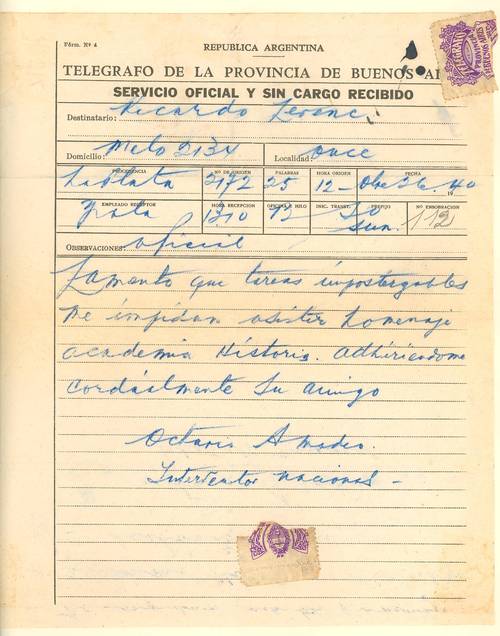 Fórm. Nº 4
REPUBLICA ARGENTINA
TELEGRAFO DE LA PROVINCIA DE BUENOS AI
SERVICIO OFICIAL Y SIN CARGO RECIBIDO
Destinatario: Ricardo Levene
Domicilio: Melo 2134 Localidad: once
PROCEDENCIA Nº DE ORIGEN PALABRAS HORA ORIGEN
La Plata 2172 25 12- 26 40
EMPLEADO RECEPTOR HORA RECEPCIÓN OFICINA E HILO INIC. TRANST. PREFIJO Nº ENUMERACION
1310 12 112
OBSERVACIONES: oficial
Lamento que tareas impostergables
me impidan asistir homenaje
academia Historia. adhiriendome
cordialmente Su amigo
Octavio Amadeo.
Interventor nacional -
TELEGRAFO
PROVINCIA DE
BUENOS AIRES